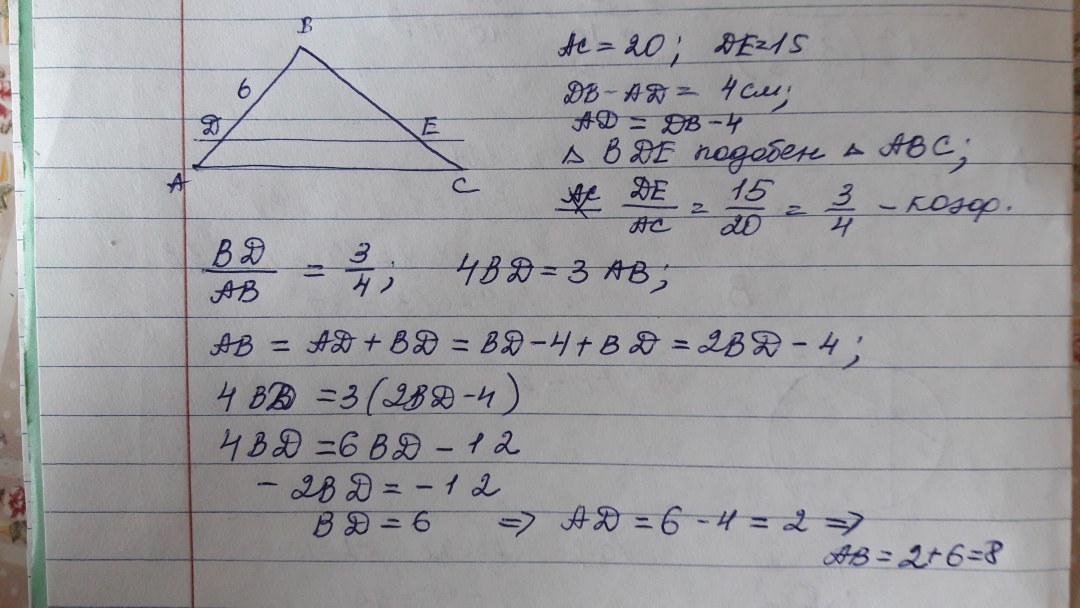 B
6
D
E
A
C
AC = 20; DE=15
DB - AD = 4 см;
AD = DB - 4
△ BDE подобен △ ABC;
AC DE/AC = 15/20 = 3/4 - коэф.
BD/AB = 3/4; 4BD = 3 AB;
AB = AD + BD = BD - 4 + BD = 2BD - 4;
4 BD = 3(2BD - 4)
4BD = 6 BD - 12
- 2BD = - 12
BD = 6 => AD = 6 - 4 = 2 =>
AB = 2 + 6 = 8